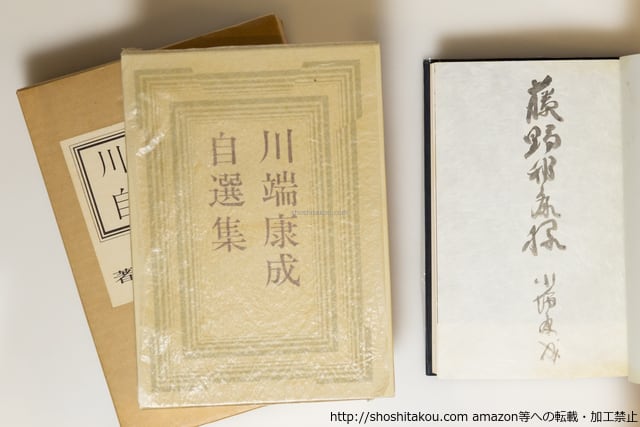 川端康成
自選集
川
自
著
藤野邦康様
川端康成
shoshitakou.com
http://shoshitakou.com amazon等への転載・加工禁止